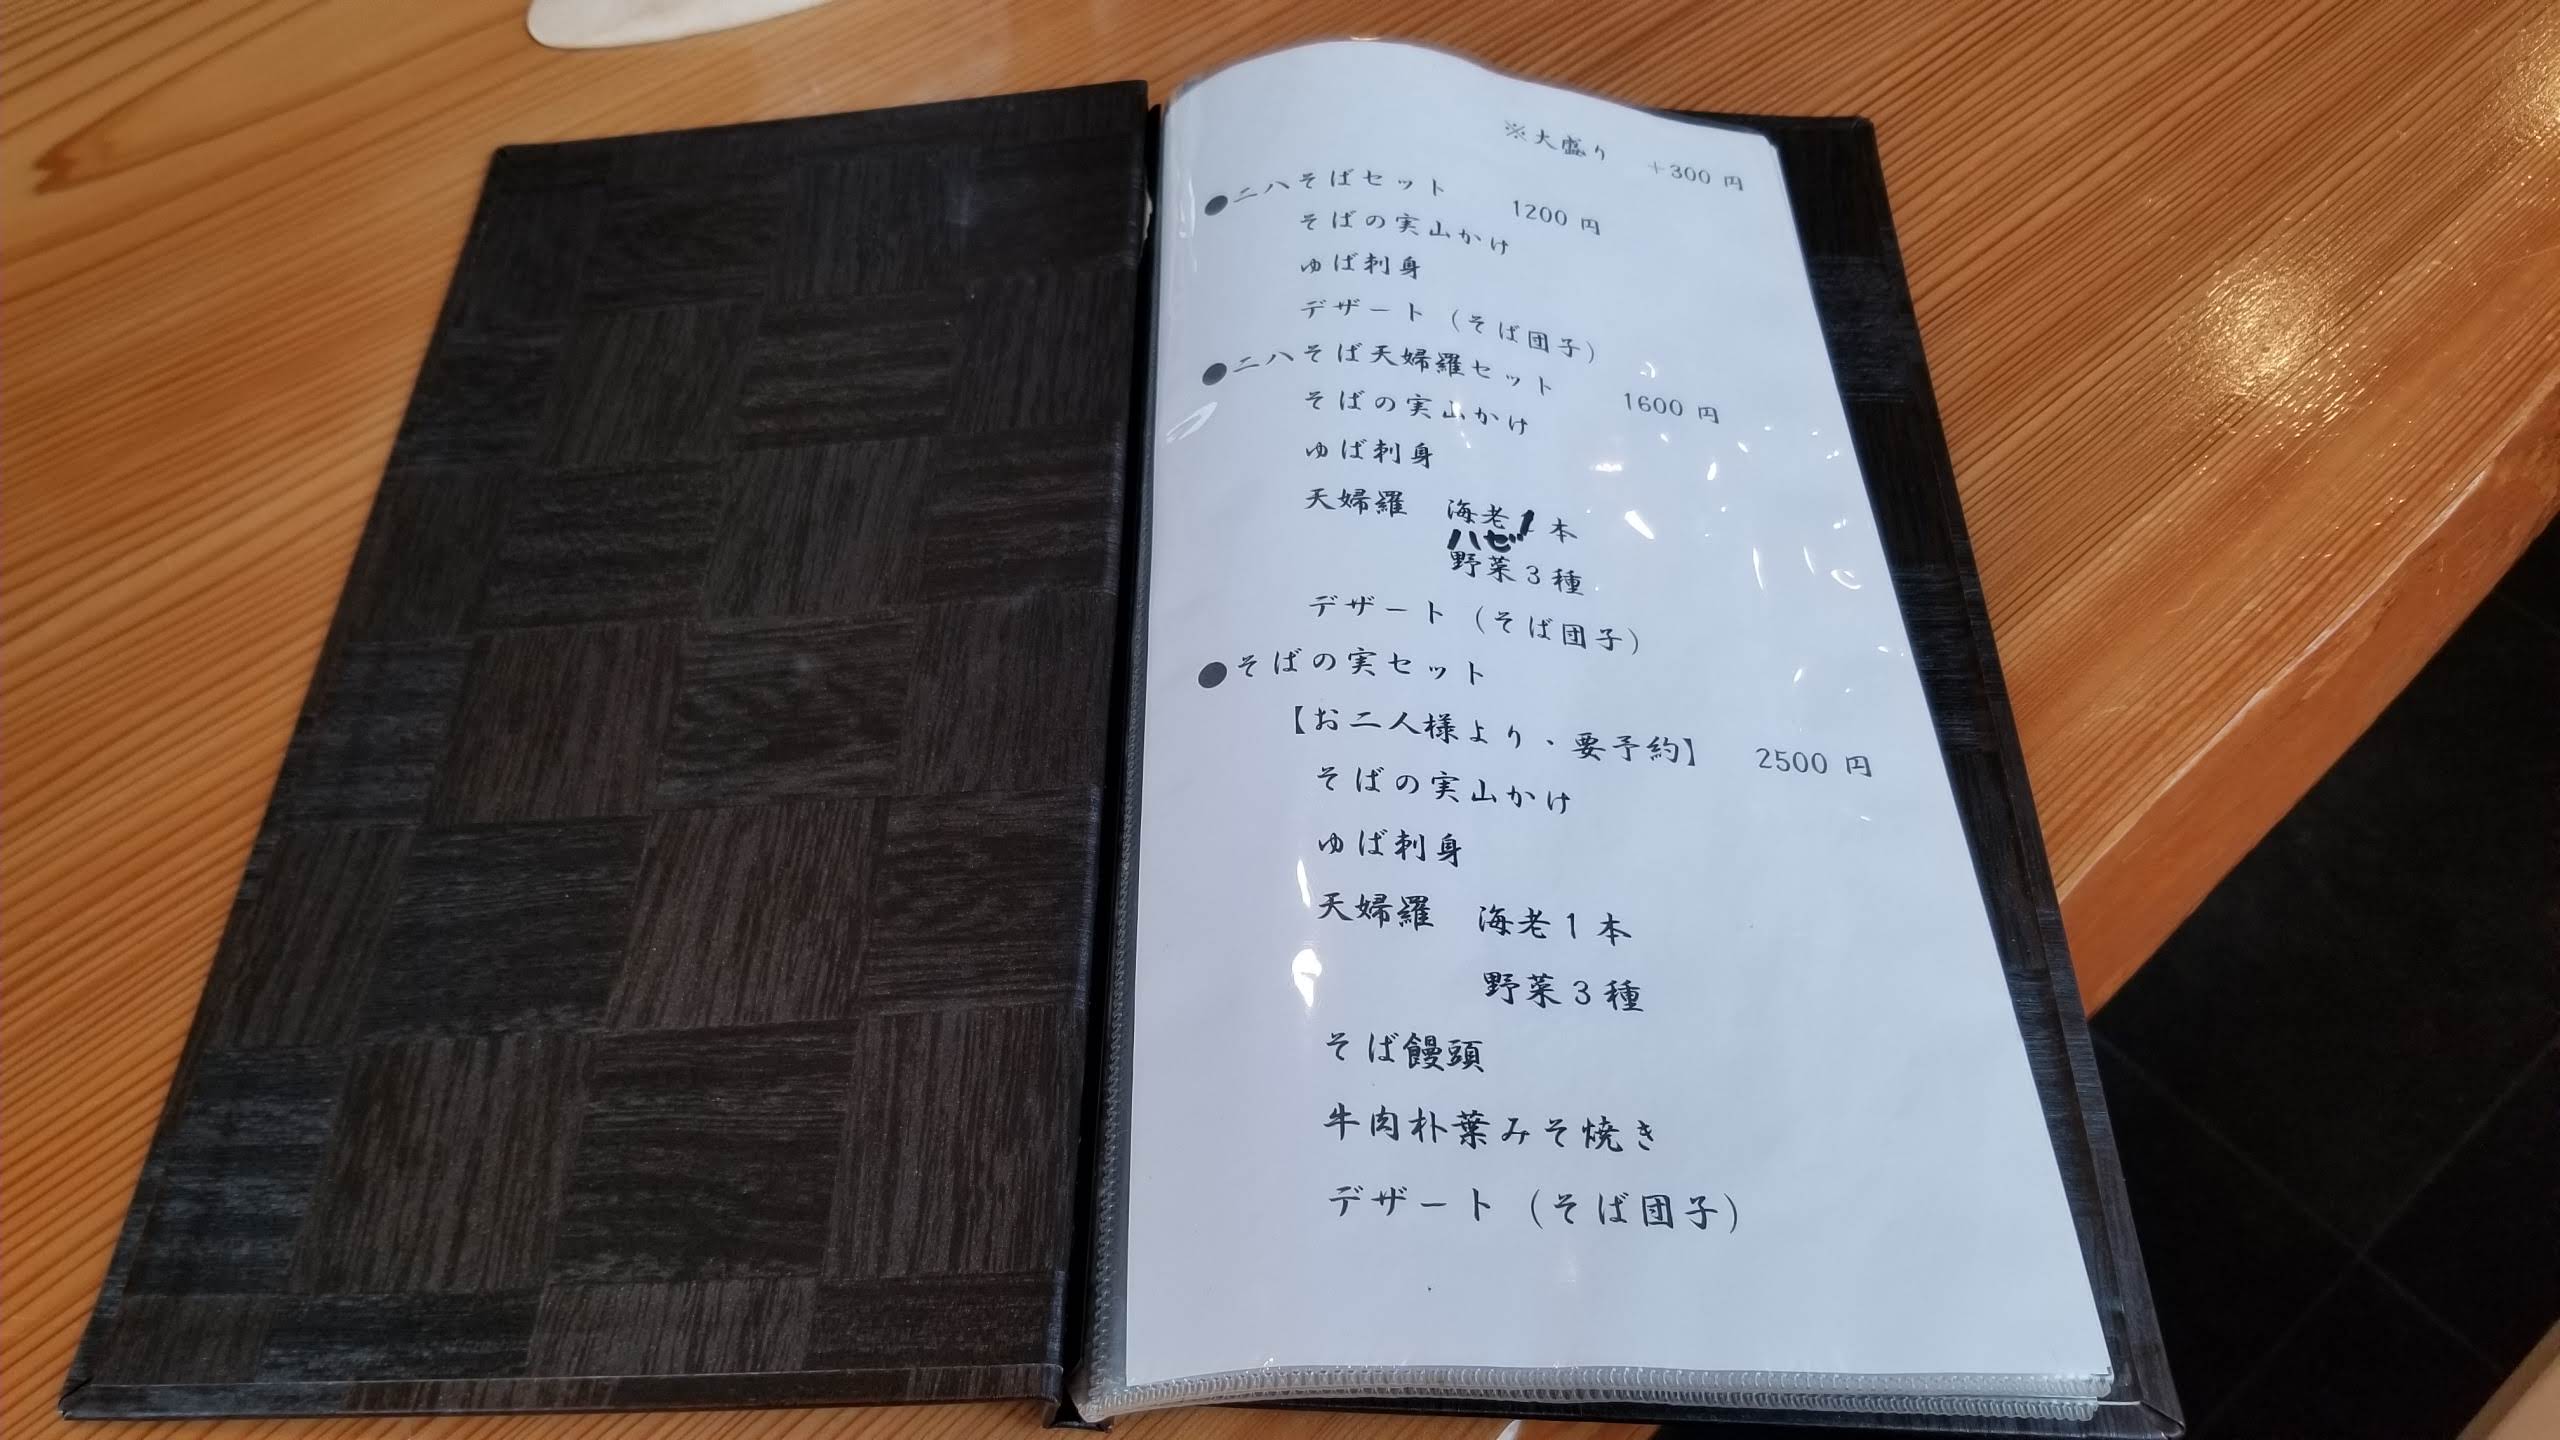 ※大盛り　+300 円
●二八そばセット　1200 円
そばの実山かけ
ゆば刺身
デザート（そば団子）
●二八そば天婦羅セット　1600 円
そばの実山かけ
ゆば刺身
天婦羅　海老1本
ハゼ
野菜3種
デザート（そば団子）
●そばの実セット
【お二人様より・要予約】　2500 円
そばの実山かけ
ゆば刺身
天婦羅　海老1本
野菜3種
そば饅頭
牛肉朴葉みそ焼き
デザート（そば団子）